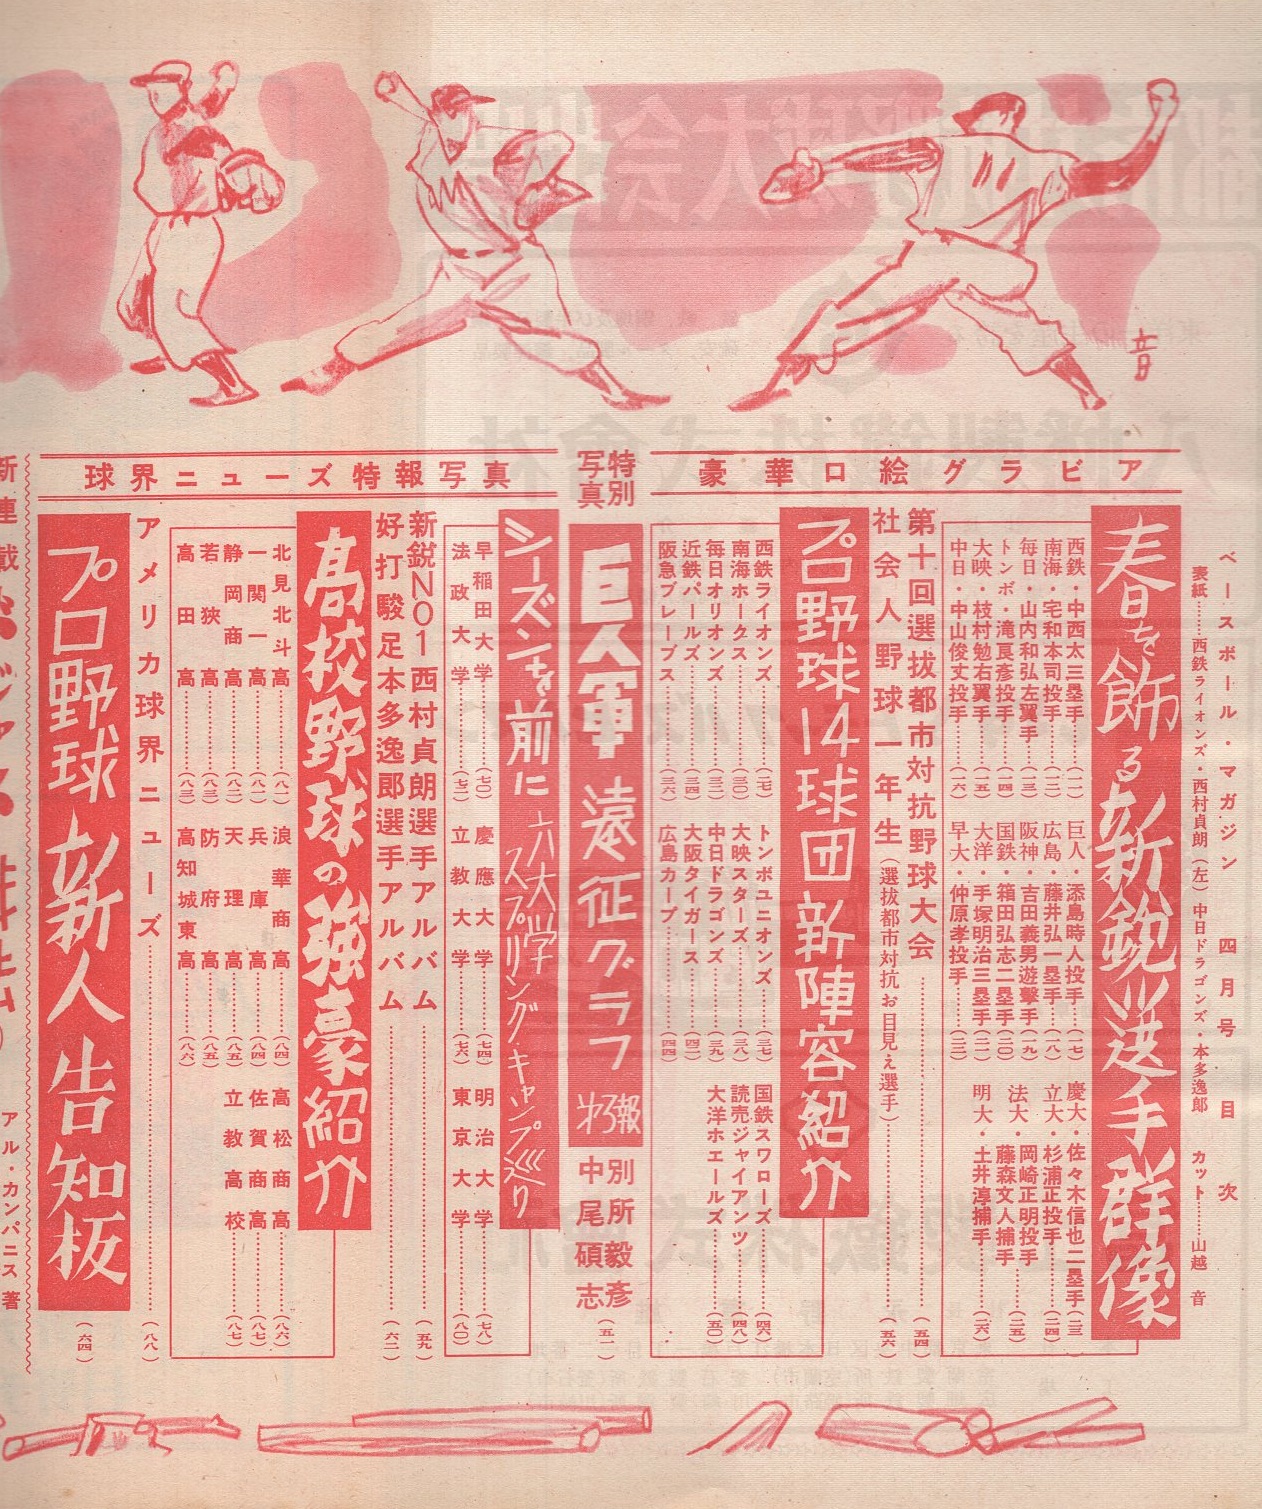 音
ベースボール・マガジン 四月号 目次
表紙……西鉄ライオンズ・西村貞朗(左)中日ドラゴンズ・本多逸郎 カット……山越 音
豪華口絵グラビア
春を飾る新鋭選手群像
西鉄・中西太三塁手……(一一) 巨人・添島時人投手……(一七) 慶大・佐々木信也二塁手(二三)
南海・宅和本司投手……(一二) 広島・藤井弘一塁手……(一八) 立大・杉浦正投手……(二四)
毎日・山内和弘左翼手(一三) 阪神・吉田義男遊撃手(一九) 岡崎正明投手
トンボ・滝良彦投手……(一四) 国鉄・箱田弘志二塁手(二〇) 法大・藤森文人捕手……(二五)
大映・枝村勉右翼手……(一五) 大洋・手塚明治三塁手(二一) 明大・土井淳捕手……(二六)
中日・中山俊丈投手……(一六) 早大・仲原孝投手……(二二)
第十回選抜都市対抗野球大会……(五四)
社会人野球一年生(選抜都市対抗お目見え選手)……(五六)
プロ野球14球団新陣容紹介
西鉄ライオンズ……(二七) トンボユニオンズ……(三七) 国鉄スワローズ……(四六)
南海ホークス……(三〇) 大映スターズ……(三八) 読売ジャイアンツ(四八)
毎日オリオンズ……(三二) 中日ドラゴンズ……(三九) 大洋ホエールズ……(五〇)
近鉄パールズ……(三四) 大阪タイガース……(四二)
阪急ブレーブス……(三六) 広島カープ……(四四)
特別写真
巨人軍遠征グラフ 第3報
別所毅彦
中尾碩志……(五一)
球界ニューズ特報写真
シーズンを前に 六大学スプリング・キャンプ巡り
早稲田大学……(七〇) 慶應大学……(七四) 明治大学……(七八)
法政大学……(七二) 立教大学……(七六) 東京大学……(八〇)
新鋭NO1西村貞朗選手アルバム……(五九)
好打駿足本多逸郎選手アルバム……(六二)
高校野球の強豪紹介
北見北斗高……(八一) 浪華商高……(八四) 高松商高……(八六)
一関一高……(八一) 兵庫高……(八四) 佐賀商高……(八七)
静岡商高……(八二) 天理高……(八五) 立教高校……(八七)
若狭高……(八三) 防府高……(八五)
高田高……(八三) 高知城東高……(八六)
アメリカ球界ニューズ……(八八)
プロ野球新人告知板……(六四)
新連載
アル・カンパニス著